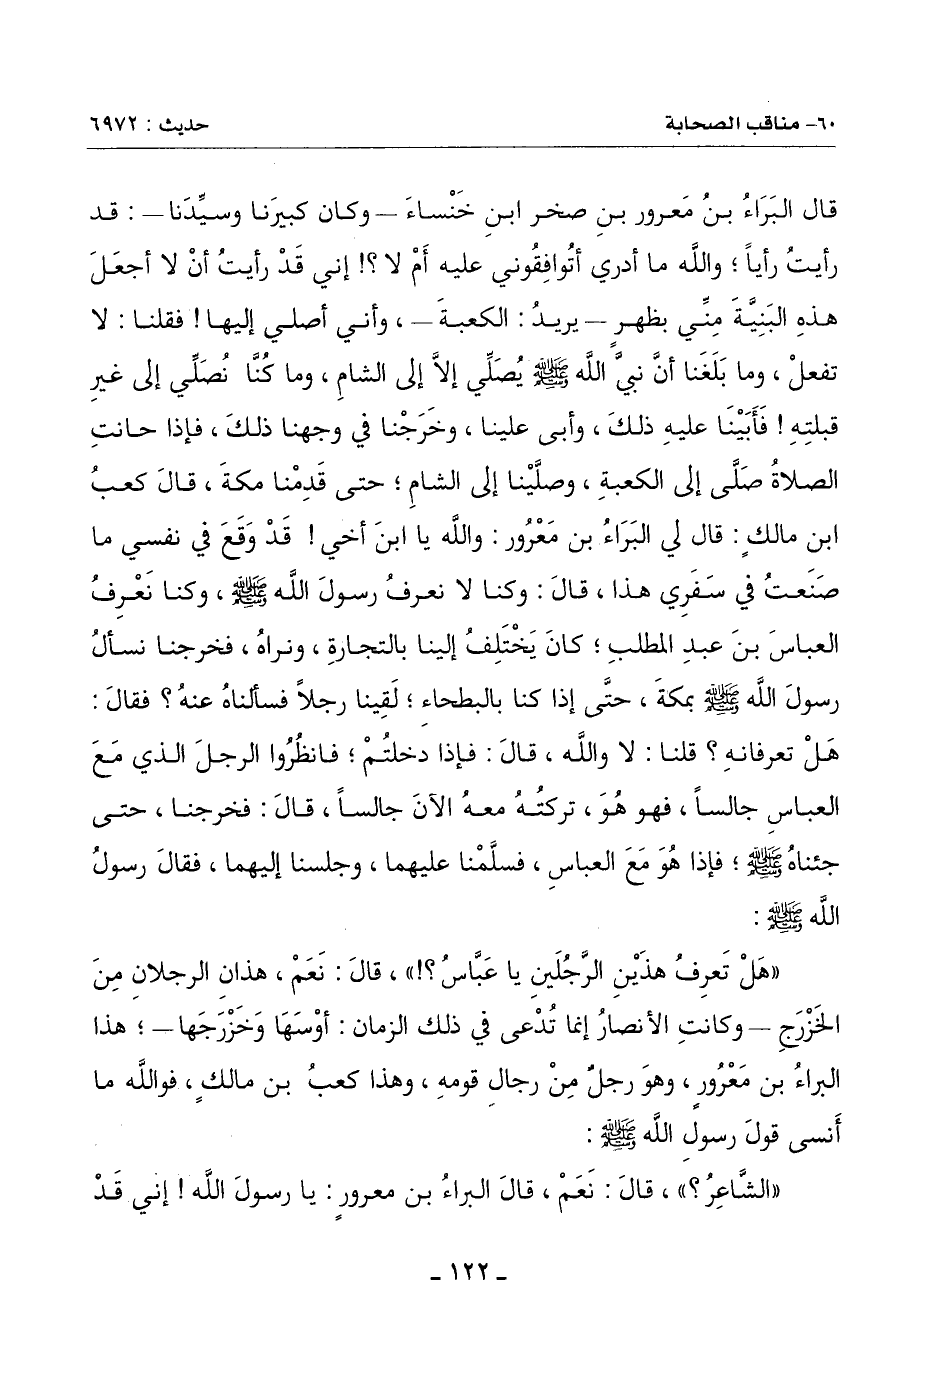 ٦٠- مناقب الصحابة حديث : ٦٩٧٢
قال البَرَاءُ بنُ مَعرور بنِ صخر ابنِ خَنْساءَ –وكان كبيرَنا وسيِّدَنا– : قد
رأيتُ رأياً ؛ واللَّه ما أدري أتُوافِقُوني عليه أَمْ لا ؟! إني قَدْ رأيتُ أنْ لا أجعَلَ
هذهِ البَنِيَّةَ مِنِّي بظهرٍ – يريدُ : الكعبةَ – ، وأني أصلي إليها ! فقلنا : لا
تفعلْ ، وما بَلَغَنا أنَّ نبيَّ اللَّه ﷺ يُصَلِّي إلاَّ إلى الشامِ ، وما كُنَّا نُصَلِّي إلى غيرِ
قبلتِهِ ! فَأَبَيْنَا عليهِ ذلكَ ، وأبى علينا ، وخَرَجْنا في وجهنا ذلكَ ، فإذا حانتِ
الصلاةُ صَلَّى إلى الكعبةِ ، وصلَّيْنا إلى الشامِ ؛ حتى قَدِمْنا مكةَ ، قالَ كعبُ
ابن مالكٍ : قال لي البَرَاءُ بن مَعْرُور : واللَّه يا ابنَ أخي ! قَدْ وَقَعَ في نفسي ما
صَنَعتُ في سَفَرِي هذا ، قالَ : وكنا لا نعرفُ رسولَ اللَّه ﷺ ، وكنا نَعْرِفُ
العباسَ بنَ عبدِ المطلبِ ؛ كانَ يَخْتَلِفُ إلينا بالتجارةِ ، ونراهُ ، فخرجنا نسألُ
رسولَ اللَّه ﷺ بمكةَ ، حتَّى إذا كنا بالبطحاءِ ؛ لَقِينا رجلاً فسألناهُ عنهُ ؟ فقالَ :
هَلْ تعرفانهِ ؟ قلنا : لا واللَّه ، قالَ : فإذا دخلتُمْ ؛ فانظُرُوا الرجلَ الذي مَعَ
العباسِ جالساً ، فهو هُوَ ، تركتُهُ معهُ الآنَ جالساً ، قالَ : فخرجنا ، حتى
جئناهُ ﷺ ؛ فإذا هُوَ مَعَ العباسِ ، فسلَّمْنا عليهما ، وجلسنا إليهما ، فقالَ رسولُ
اللَّه ﷺ :
«هَلْ تَعرِفُ هذَيْنِ الرَّجُلَينِ يا عَبَّاسُ ؟!» ، قالَ : نَعَمْ ، هذانِ الرجلانِ مِنَ
الخَزْرَجِ –وكانتِ الأنصارُ إنما تُدْعى في ذلك الزمان : أوْسَهَا وَخَزْرَجَها– ؛ هذا
البراءُ بن مَعْرُورٍ ، وهوَ رجلٌ مِنْ رجالِ قومهِ ، وهذا كعبُ بن مالكٍ ، فواللَّه ما
أَنسى قولَ رسولِ اللَّه ﷺ :
«الشَّاعِرُ ؟» ، قالَ : نَعَمْ ، قالَ البراءُ بن معرورٍ : يا رسولَ اللَّه ! إني قَدْ
- ١٢٢ -